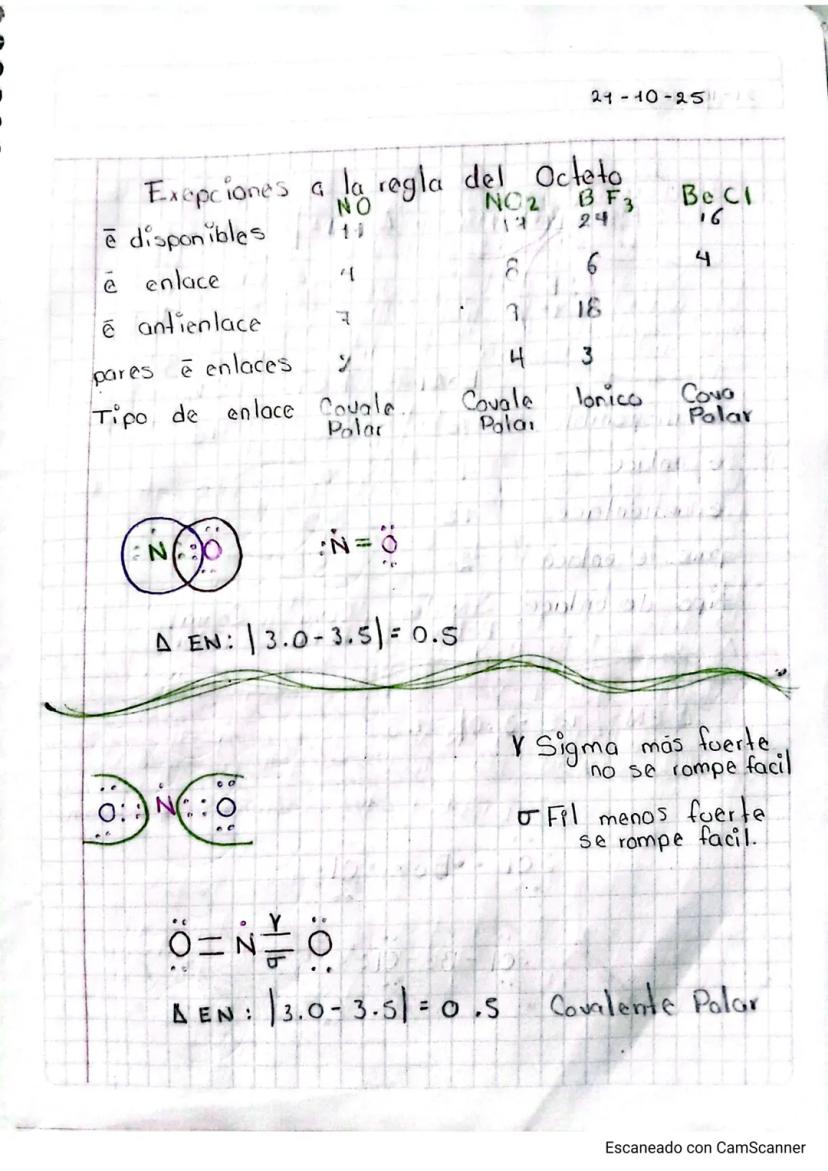 21-10-25
Exepciones a la regla del Octeto
NO NO2 B F3 Be Cl
ē disponibles 11 17 24 16
ē enlace 4 8 6 4
ē antienlace 7 9 18
pares ē enlaces 2 4 3
Tipo de enlace Covale. Covale Ionico Cova
Polar Polar Polar
:N::O :N=O
Δ EN: |3.0-3.5|= 0.5
γ Sigma más fuerte
no se rompe facil
O::N::O
σ Fil menos fuerte
se rompe facil.
γ
O=N=O
σ
Δ EN: |3.0-3.5| = 0.5 Covalente Polar
Escaneado con CamScanner